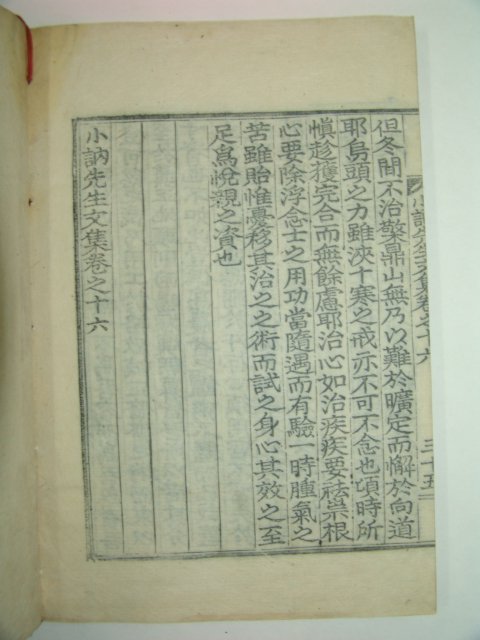 小訥先生文集卷之十六
三十五
但冬間不治檠鼎山無乃以難於曠定而懈於向道
耶烏頭之力雖浹十寒之戒亦不可不念也頃時所
愼趁穫完合而無餘慮耶治心如治疾疾要祛祟根
心要除浮念士之用功當隨遇而有驗一時腫氣之
苦雖貽惟憂移其治之之術而試之身心其效之至
足爲悅親之資也
小訥先生文集卷之十六